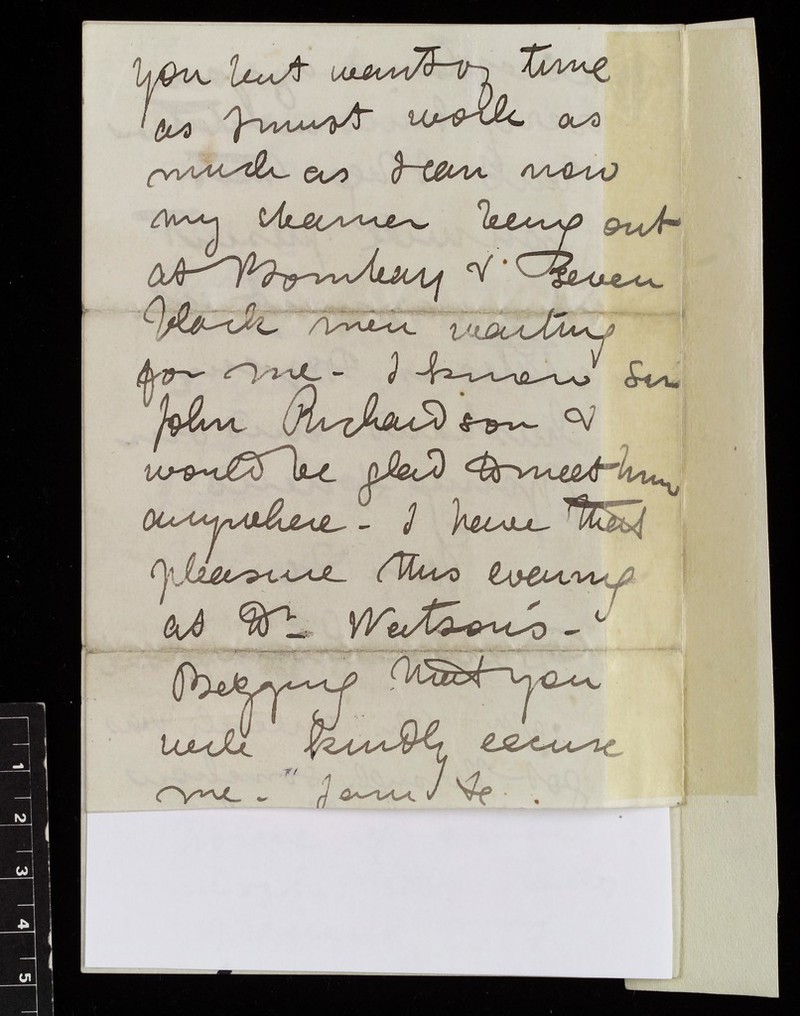 you but want of time
as I must work as
much as I can now
my steamer being out
at Bombay & Seven
black men waiting
for me - I know Sir
John Richardson &
would be glad to meet him
anywhere - I have that
pleasure this evening
at Dr Watson's -
Begging that you
will kindly excuse
me - I am &c.
1
2
3
4
5